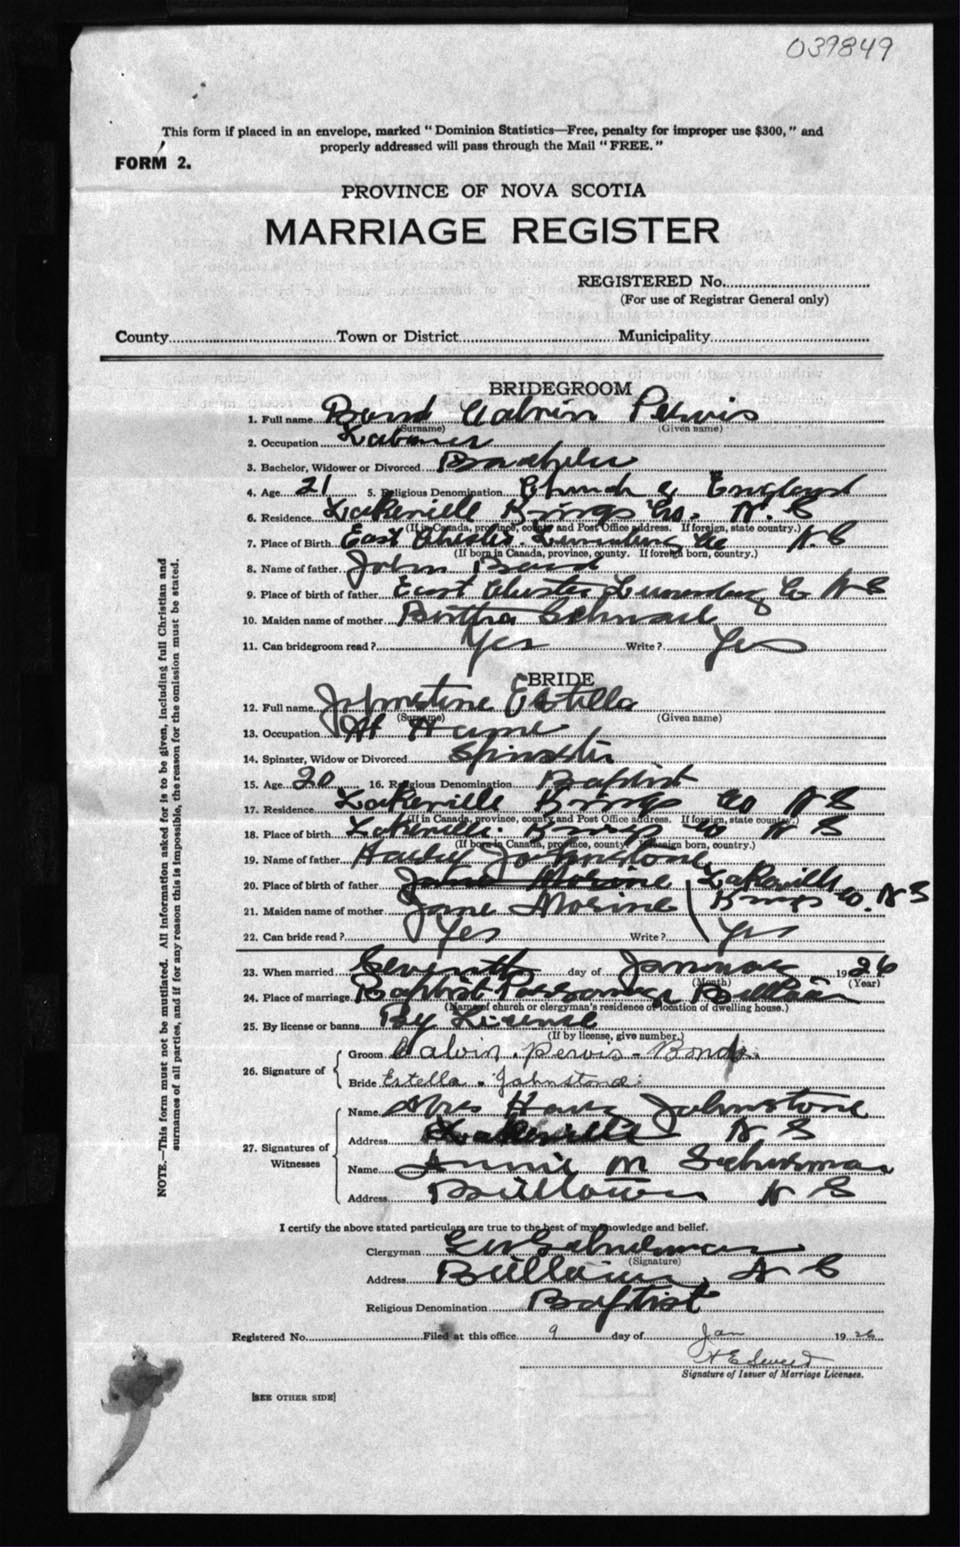 039849
This form if placed in an envelope, marked "Dominion Statistics—Free, penalty for improper use $300," and
properly addressed will pass through the Mail "FREE."
FORM 2.
PROVINCE OF NOVA SCOTIA
MARRIAGE REGISTER
REGISTERED No.
(For use of Registrar General only)
County Town or District Municipality
BRIDEGROOM
1. Full name Bond Calvin Pervis
(Surname) (Given name)
2. Occupation Labourer
3. Bachelor, Widower or Divorced Bachelor
4. Age 21 5. Religious Denomination Church of England
6. Residence Lakeville Kings Co. N. S
(If in Canada, province, county and Post Office address. If foreign, state country.)
7. Place of Birth East Chester Lunenburg Co N.S
(If born in Canada, province, county. If foreign born, country.)
8. Name of father John Bond
9. Place of birth of father East Chester Lunenburg Co N S
10. Maiden name of mother Bertha
11. Can bridegroom read? Yes Write? Yes
BRIDE
12. Full name Johnstone Estella
(Surname) (Given name)
13. Occupation At Home
14. Spinster, Widow or Divorced Spinster
15. Age 20 16. Religious Denomination Baptist
17. Residence Lakeville Kings Co N S
(If in Canada, province, county and Post Office address. If foreign, state country.)
18. Place of birth Lakeville Kings Co N S
(If born in Canada, province, county. If foreign born, country.)
19. Name of father Johnstone
20. Place of birth of father Jane Morine Lakeville
21. Maiden name of mother Jane Morine Kings Co. N S
22. Can bride read? Yes Write? Yes
23. When married Seventh day of January 1926
(Month) (Year)
24. Place of marriage Baptist Parsonage Billtown
(Name of church or clergyman's residence or location of dwelling house.)
25. By license or banns By License
(If by license, give number.)
26. Signature of
Groom Calvin. Pervis - Bond.
Bride Estella. Johnstone.
27. Signatures of Witnesses
Name Mrs Johnstone
Address Lakeville N S
Name Annie M
Address Billtown N S
I certify the above stated particulars are true to the best of my knowledge and belief.
Clergyman
(Signature)
Address Billtown N S
Religious Denomination Baptist
Registered No. Filed at this office 9 day of Jan 1926
Signature of Issuer of Marriage Licenses.
[SEE OTHER SIDE]
NOTE.—This form must not be mutilated. All information asked for is to be given, including full Christian and
surnames of all parties, and if for any reason this is impossible, the reason for the omission must be stated.